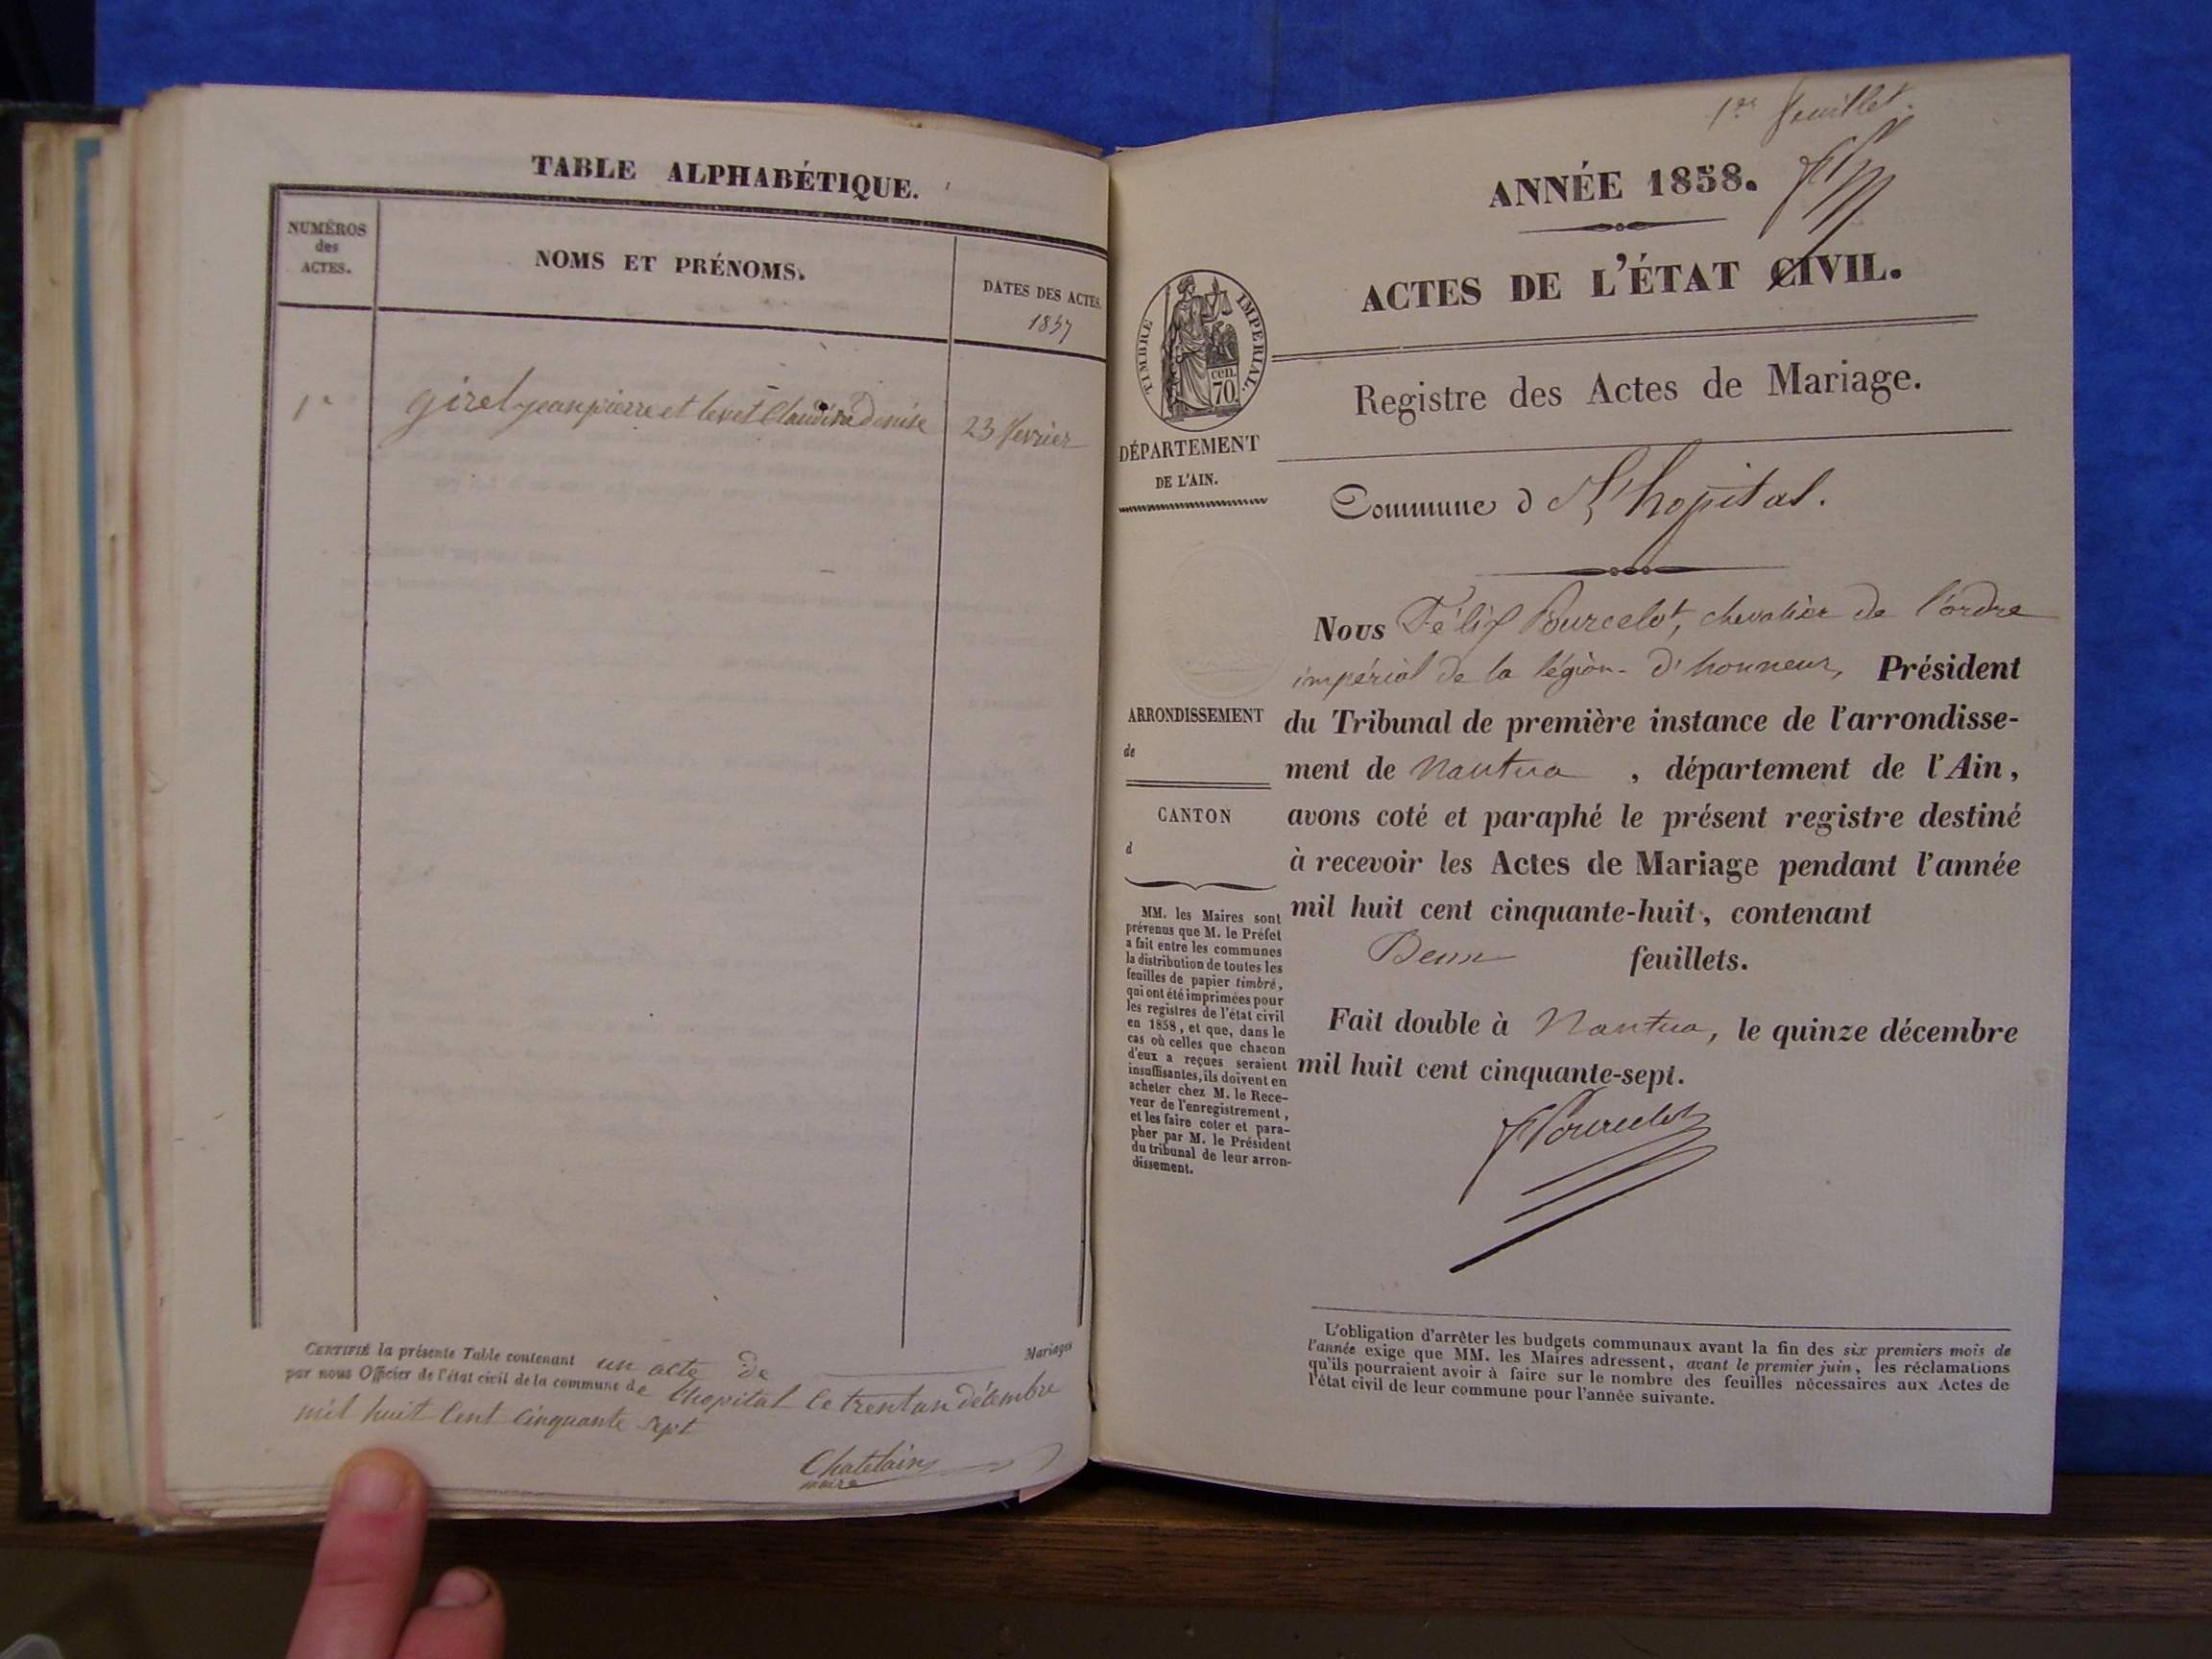 TABLE ALPHABÉTIQUE.
NUMÉROS
des
ACTES.
NOMS ET PRÉNOMS.
DATES DES ACTES.
1857
1er
girel jean pierre et levet Claudine denise
23 fevrier
CERTIFIÉ la présente Table contenant un acte de Mariages
par nous Officier de l'état civil de la commune de lhopital le trente un décembre
mil huit Cent Cinquante sept
Chatelain
maire
1er feuillet.
ANNÉE 1858.
ACTES DE L'ÉTAT CIVIL.
TIMBRE IMPERIAL.
cen.
70.
Registre des Actes de Mariage.
DÉPARTEMENT
DE L'AIN.
Commune d L'hopital.
Nous Félix Pourcelot, chevalier de l'ordre
impérial de la légion d'honneur, Président
du Tribunal de première instance de l'arrondisse-
ment de Nantua, département de l'Ain,
avons coté et paraphé le présent registre destiné
à recevoir les Actes de Mariage pendant l'année
mil huit cent cinquante-huit, contenant
Deux feuillets.
Fait double à Nantua, le quinze décembre
mil huit cent cinquante-sept.
FPourcelot
ARRONDISSEMENT
de
CANTON
d
MM. les Maires sont
prévenus que M. le Préfet
a fait entre les communes
la distribution de toutes les
feuilles de papier timbré,
qui ont été imprimées pour
les registres de l'état civil
en 1858, et que, dans le
cas où celles que chacun
d'eux a reçues seraient
insuffisantes, ils doivent en
acheter chez M. le Rece-
veur de l'enregistrement,
et les faire coter et para-
pher par M. le Président
du tribunal de leur arron-
dissement.
L'obligation d'arrêter les budgets communaux avant la fin des six premiers mois de
l'année exige que MM. les Maires adressent, avant le premier juin, les réclamations
qu'ils pourraient avoir à faire sur le nombre des feuilles nécessaires aux Actes de
l'état civil de leur commune pour l'année suivante.